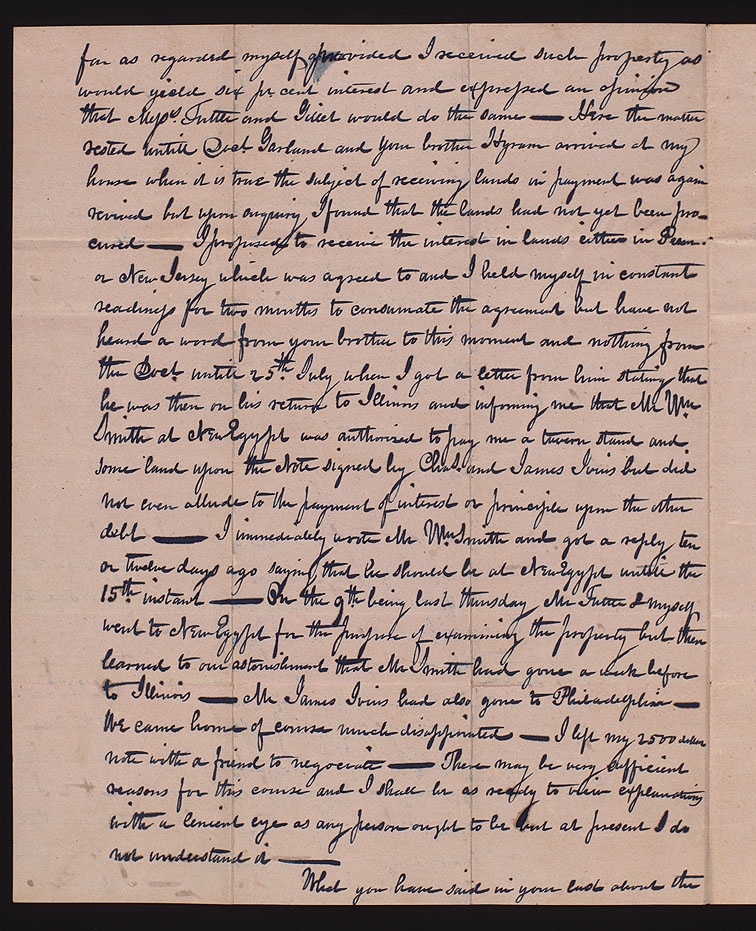 far as regarded myself provided I received such property as
would yield six pr cent interest and expressed an opinion
that Messrs. Tuttle and Gillet would do the same — Here the matter
rested untill Doct. Garland and your brother Hyram arrived at my
house when it is true the subject of receiving lands in payment was again
revived but upon enquiry I found that the lands had not yet been pro-
cured — I proposed to receive the interest in lands either in Penn.
or New Jersey which was agreed to and I held myself in constant
readiness for two months to consumate the agreement but have not
heard a word from your brother to this moment and nothing from
the Doct. untill 25th July when I got a letter from him stating that
he was then on his return to Illinois and informing me that Mr Wm
Smith at New Egypt was authorized to pay me a tavern stand and
some land upon the Note signed by Chas. and James Ivins but did
not even allude to the payment of interest or principle upon the other
debt — I immediately wrote Mr Wm. Smith and got a reply ten
or twelve days ago saying that he should be at New Egypt untill the
15th instant — On the 9th being last thursday Mr Tuttle & myself
went to New Egypt for the purpose of examining the property but then
learned to our astonishment that Mr Smith had gone a week before
to Illinois — Mr James Ivins had also gone to Philadelphia —
We came home of course much disappointed — I left my 2500 dollar
note with a friend to negociate — There may be very sufficient
reasons for this course and I shall be as ready to view explanations
with a lenient eye as any person ought to be but at present I do
not understand it —
What you have said in your last about the